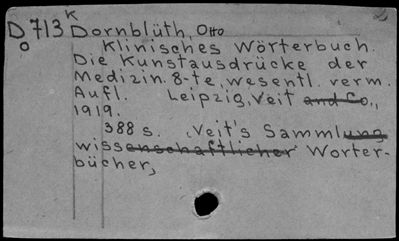 D713K Dornblüth, Otto
O Klinisches Wörterbuch.
Die Kunstausdrücke der
Medizin. 8-te, wesentl. verm.
Aufl. Leipzig, Veit and Co.,
1919.
388 s. (Veit's Sammlung
wissenschaftlicher Worter-
bücher,